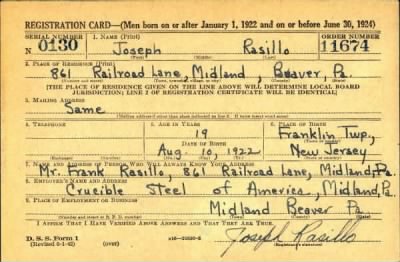 REGISTRATION CARD—(Men born on or after January 1, 1922 and on or before June 30, 1924)
SERIAL NUMBER 1. NAME (Print) ORDER NUMBER
N 0130 Joseph Rasillo 11674
(First) (Middle) (Last)
2. PLACE OF RESIDENCE (Print)
861 Railroad Lane, Midland, Beaver, Pa.
(Number and street) (Town, township, village, or city) (County) (State)
[THE PLACE OF RESIDENCE GIVEN ON THE LINE ABOVE WILL DETERMINE LOCAL BOARD
JURISDICTION; LINE 2 OF REGISTRATION CERTIFICATE WILL BE IDENTICAL]
3. MAILING ADDRESS
Same
(Mailing address if other than place indicated on line 2. If same insert word same)
4. TELEPHONE 5. AGE IN YEARS 6. PLACE OF BIRTH
19 Franklin Twp.,
DATE OF BIRTH (Town or county)
Aug. 10, 1922 New Jersey
(Mo.) (Day) (Yr.) (State or country)
7. NAME AND ADDRESS OF PERSON WHO WILL ALWAYS KNOW YOUR ADDRESS
Mr. Frank Rasillo, 861 Railroad Lane, Midland, Pa.
8. EMPLOYER'S NAME AND ADDRESS
Crucible Steel of America, Midland, Pa
9. PLACE OF EMPLOYMENT OR BUSINESS
Midland Beaver Pa
(Number and street or R. F. D. number) (Town) (County) (State)
I AFFIRM THAT I HAVE VERIFIED ABOVE ANSWERS AND THAT THEY ARE TRUE.
D. S. S. Form 1
(Revised 6-1-42) (over) Joseph Rasillo
(Registrant's signature)